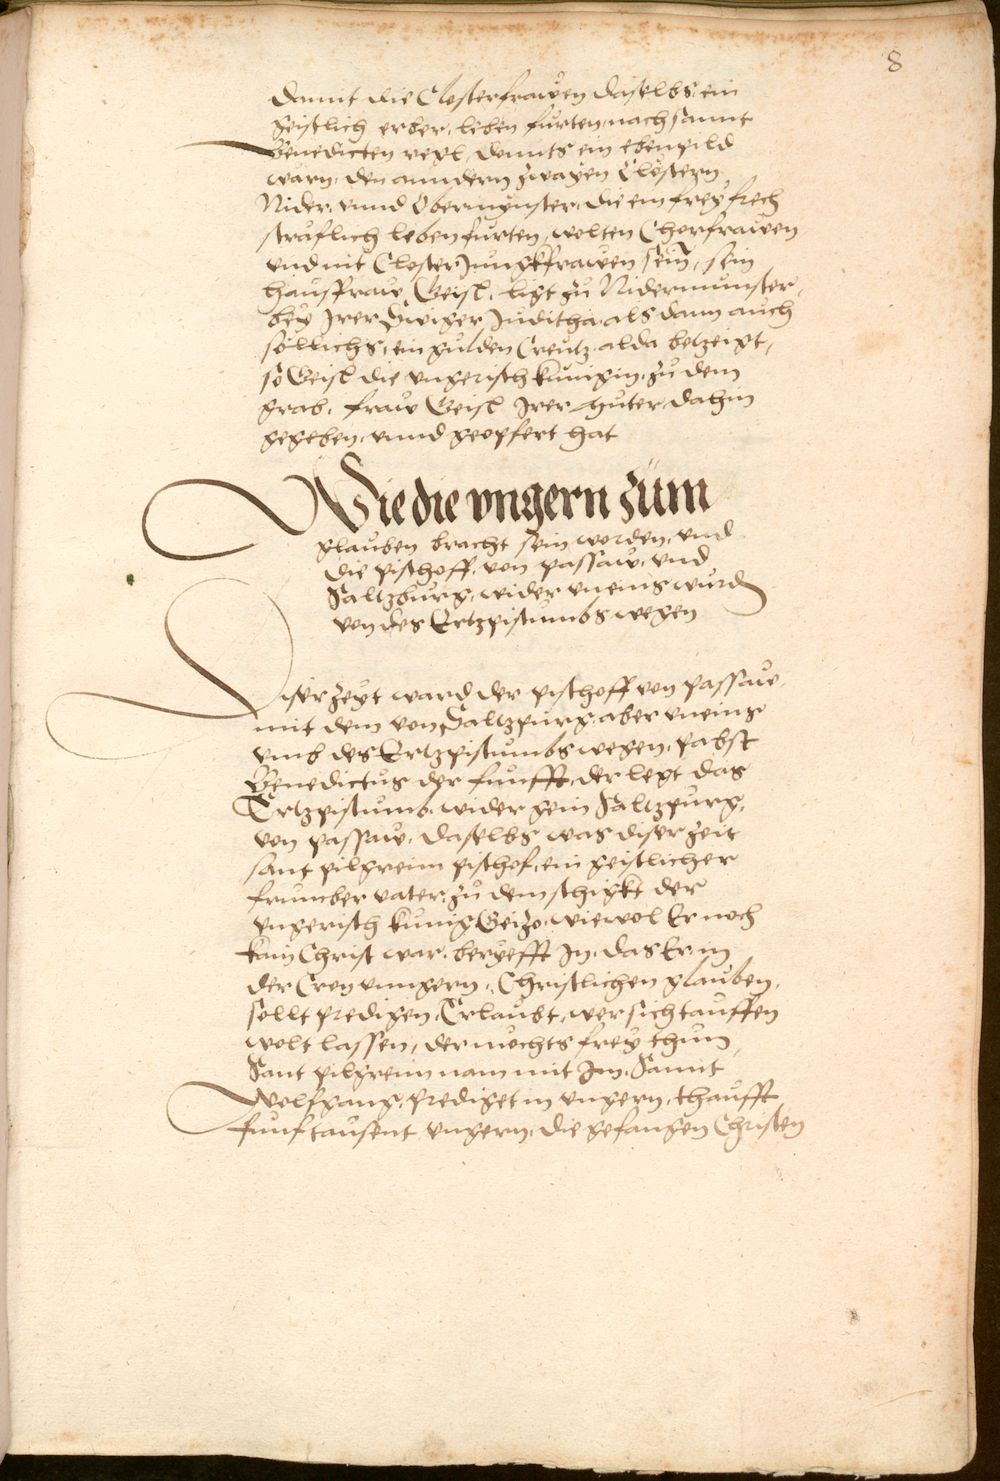 8
damit die Closterfrawen daselbs ein
geistlich erber, leben furten, nach sannt
Benedicten regl, domits ein ebenpild
warn, den anndern zwayen Clöstern
Nider, unnd Obermynster, die ein frey frech
sträflich leben furten, wolten Chorfrawen
und nit Closter Jungkfrawen sein, sein
hausfraw Geisl, ligt zu Nidermunster,
bey Irer Swiger Juditha, als dann auch
söllichs, ein gulden Creutz, alda betzeigt,
so Geisl die ungerisch kunigin, zu dem
grab, fraw Geisl Irer muter, dahin
gegeben, unnd geopfert hat
Wie die vngern züm
glauben bracht sein worden, und
die pischoff, von passaw, und
Saltzburg, wider uneins wurdn
von des Ertzpistumbs wegen
Diser Zeyt ward der pischoff von passaw
mit dem von Saltzpurg, aber uneins
umb des Ertzpistumbs wegen, pabst
Benedictus der funfft, der legt das
Ertzpistumb, wider gein Saltzpurg,
von passaw, daselbs was diser Zeit
sant pilgreim pischof, ein geistlicher
frumber vater, zu dem schigkt der
ungerisch kunig Geizo, wiewol Er noch
kain Christ war, beruefft In, das Er in
der Cron unngern, Christlichen glauben,
sollt predigen, Erlaubt, wer sich tauffen
wolt lassen, der mochts frey thun,
Sant pilgreim nam mit Im, Sannt
Wolfgang, prediget in ungern, thaufft
funf tausent ungern, die gefangen Christen